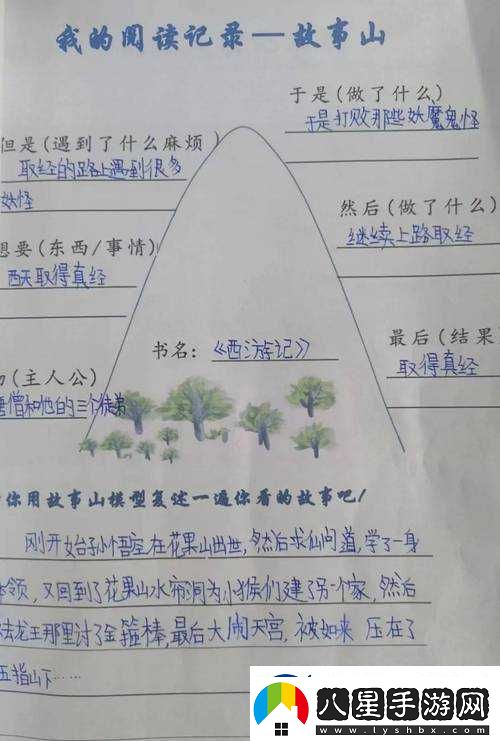 我的阅读记录—故事山
于是(做了什么)
于是打败那些妖魔鬼怪
但是(遇到了什么麻烦)
取经的路上遇到很多
妖怪
然后(做了什么)
继续上路取经
想要(东西/事情)
西天取得真经
最后(结果
取得真经
书名：《西游记》
(主人公)
唐僧和他的三个徒弟
你用故事山模型复述一遍你看的故事吧！
刚开始孙悟空在花果山出世,然后求仙问道,学了一身
本领,又回到了花果山水帘洞为小猴们建了另一个家,然后
去龙王那里讨了金箍棒,最后大闹天宫,被如来 压在了
五指山下……
八星手游网
www.lyshbx.com